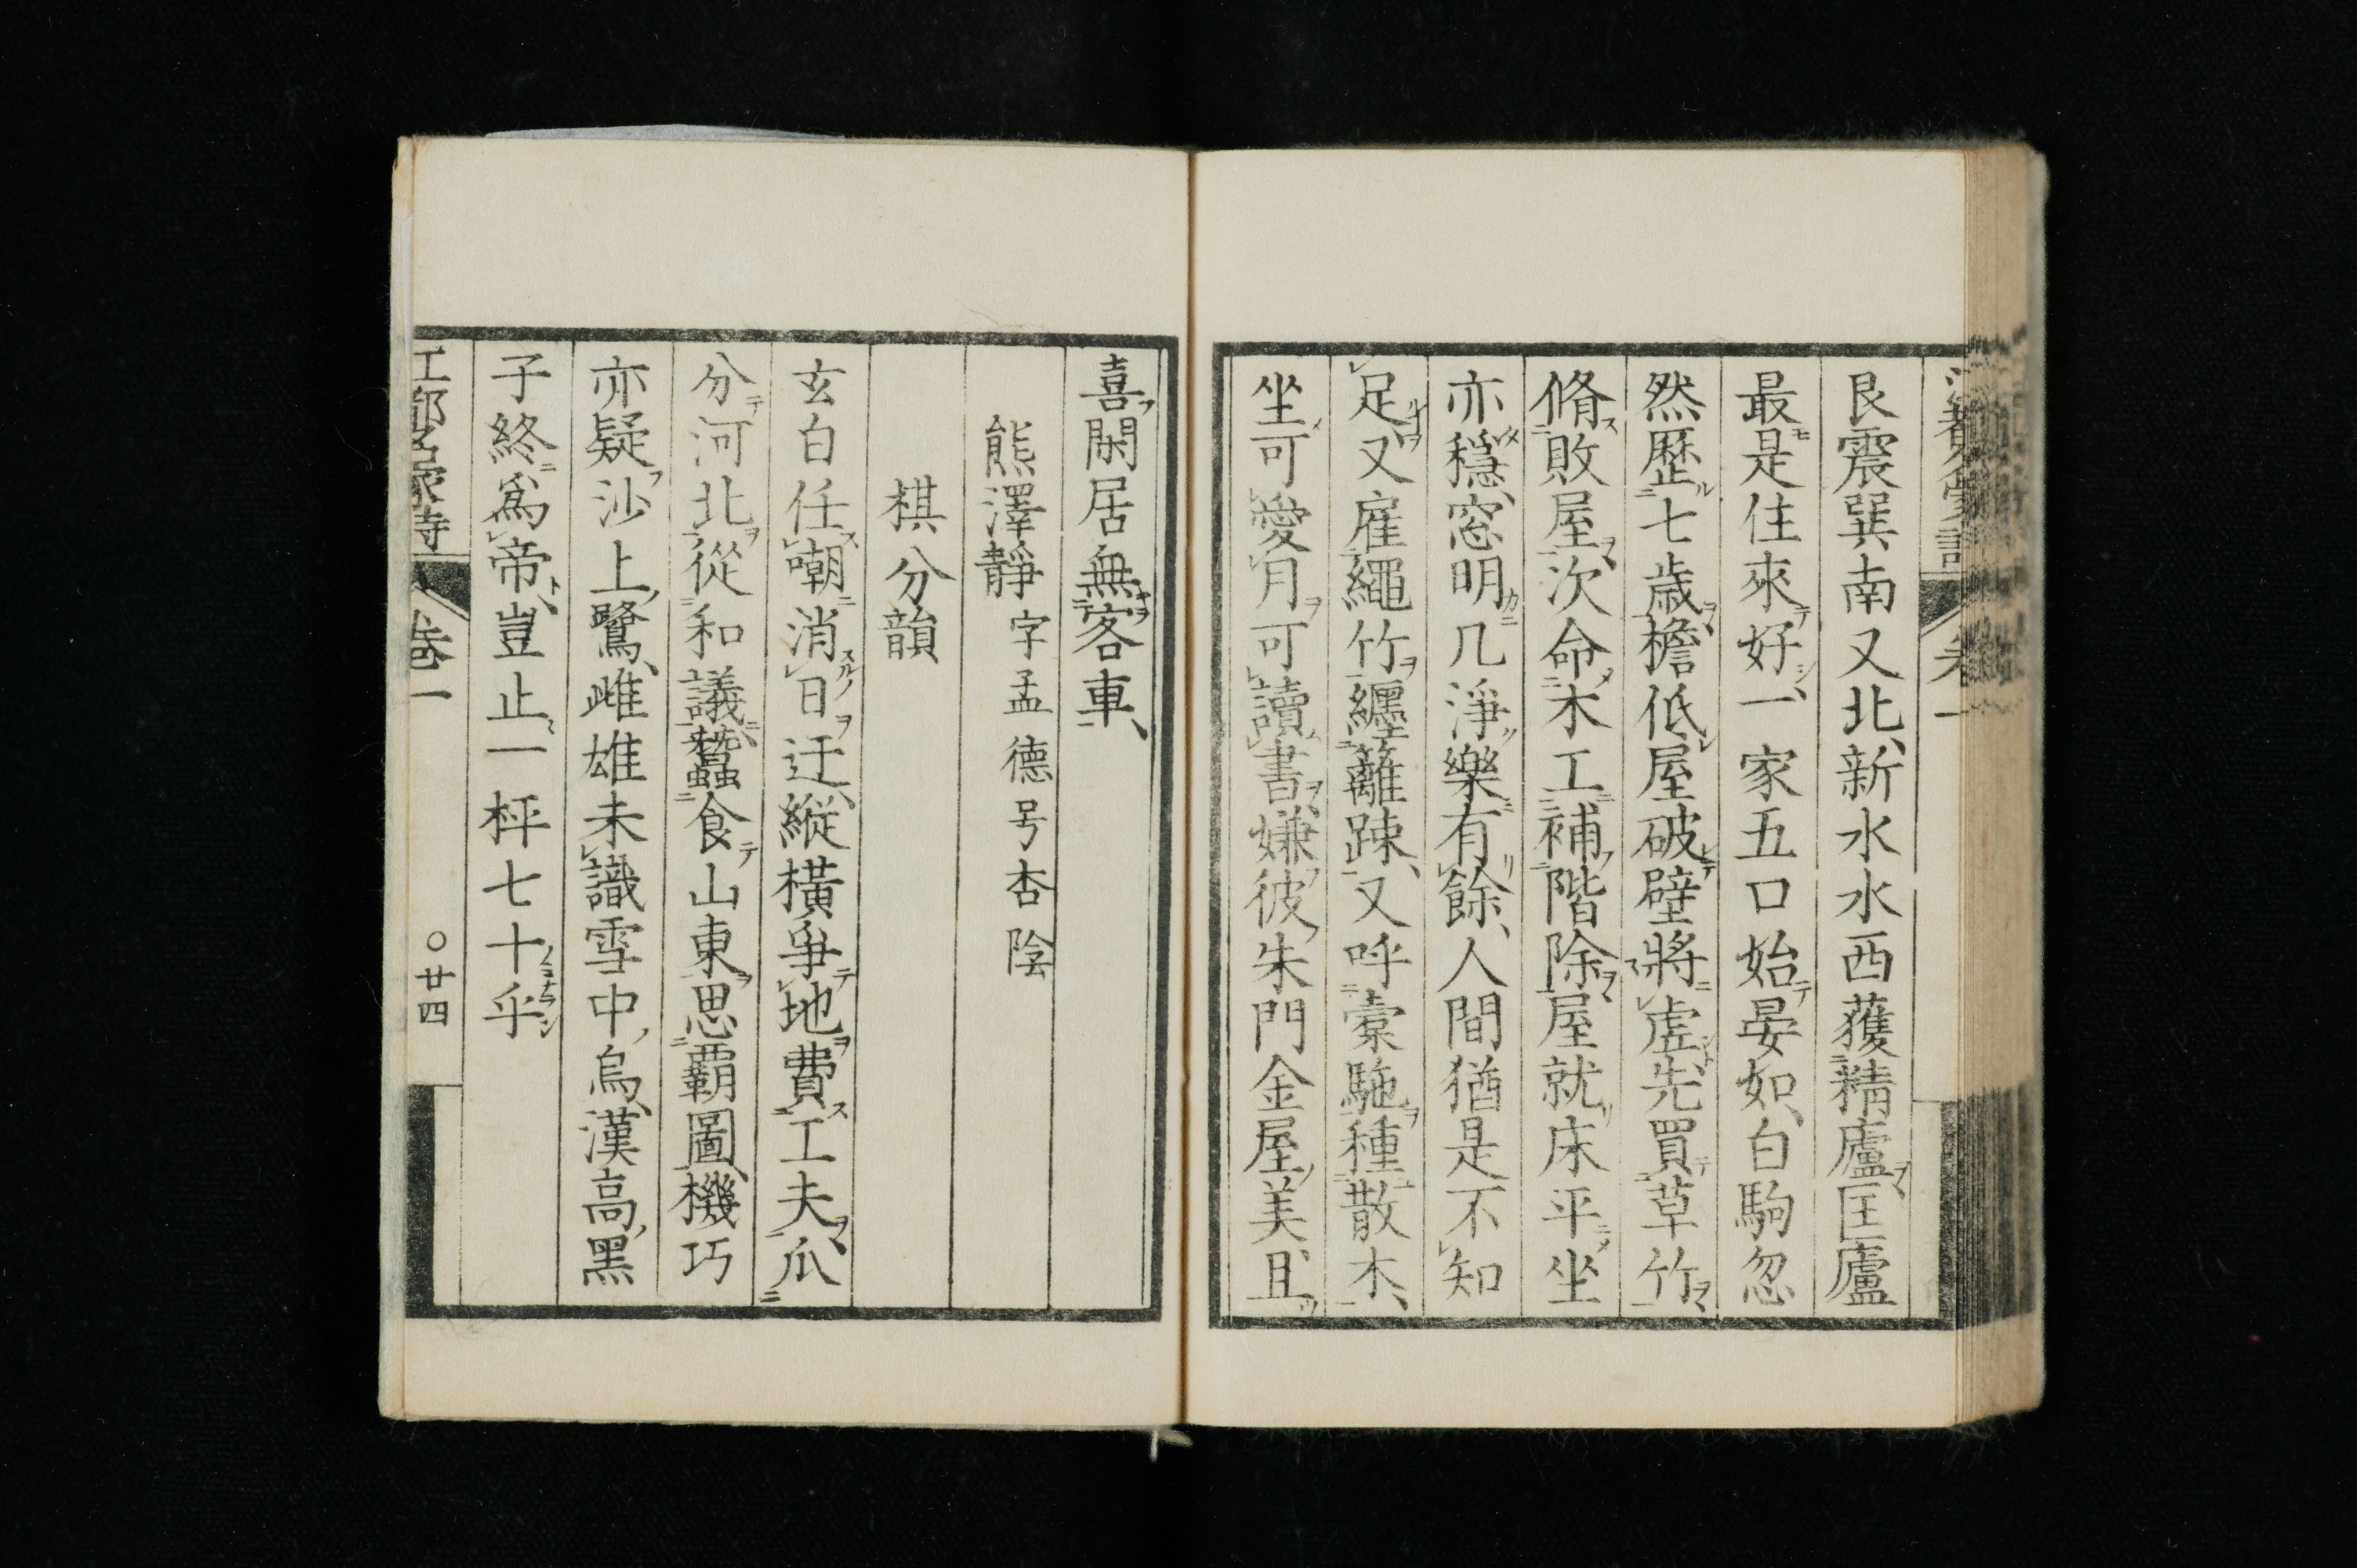 艮震巽南又北、新水水西獲精廬匡廬
最是住來好、一家五口始晏如、白駒忽
然歴七歳檐低屋破壁將虚先買草竹
脩敗屋次命木工補階除屋就床平坐
亦穏、窓明几淨樂有餘、人間猶是不知
足又雇繩竹纏籬踈、又呼橐駞種散木、
坐可愛月可讀書嫌彼朱門金屋美且
喜閑居無客車、
熊澤靜 字孟德号杏陰
棋分韻
玄白任嘲消日迂、縦橫爭地費工夫、瓜
分河北從和議、蠶食山東思覇圖、機巧
亦疑沙上鷺、雌雄未識雪中烏、漢高黑
子終爲帝、豈止一枰七十乎
卷一
〇廿四